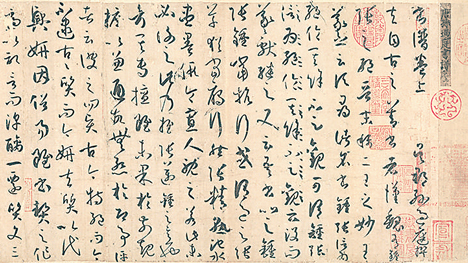 書譜卷上 吳郡孫過庭撰
夫自古之善書者漢魏有鍾
張之絕晉末稱二王之妙王
羲之云頃尋諸名書鍾張信
為絕倫其餘不足觀可謂鍾張
云沒而羲獻繼之又云吾書
比之鍾張鍾當抗行或謂過之
張草猶當雁行然張精熟池水
盡墨假令寡人耽之若此未
必謝之此乃推張邁鍾之意也
考其專擅雖未果於前規摭
以兼通故無慚於即事評
者云彼之四賢古今特絕而今
不逮古古質而今妍夫質以代
興妍因俗易雖書契之作適
以記言而淳醨一遷質文三